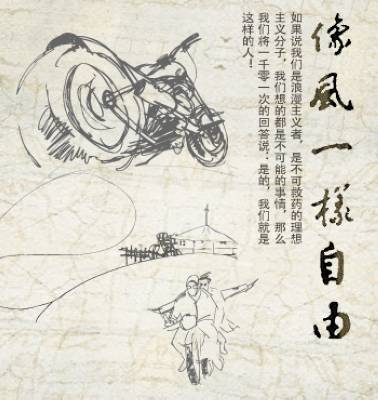 像風一樣自由
如果说我们是浪漫主义者，是不可救药的理想
主义分子，我们想的都是不可能的事情，那么
我们将一千零一次的回答说：是的，我们就是
这样的人！